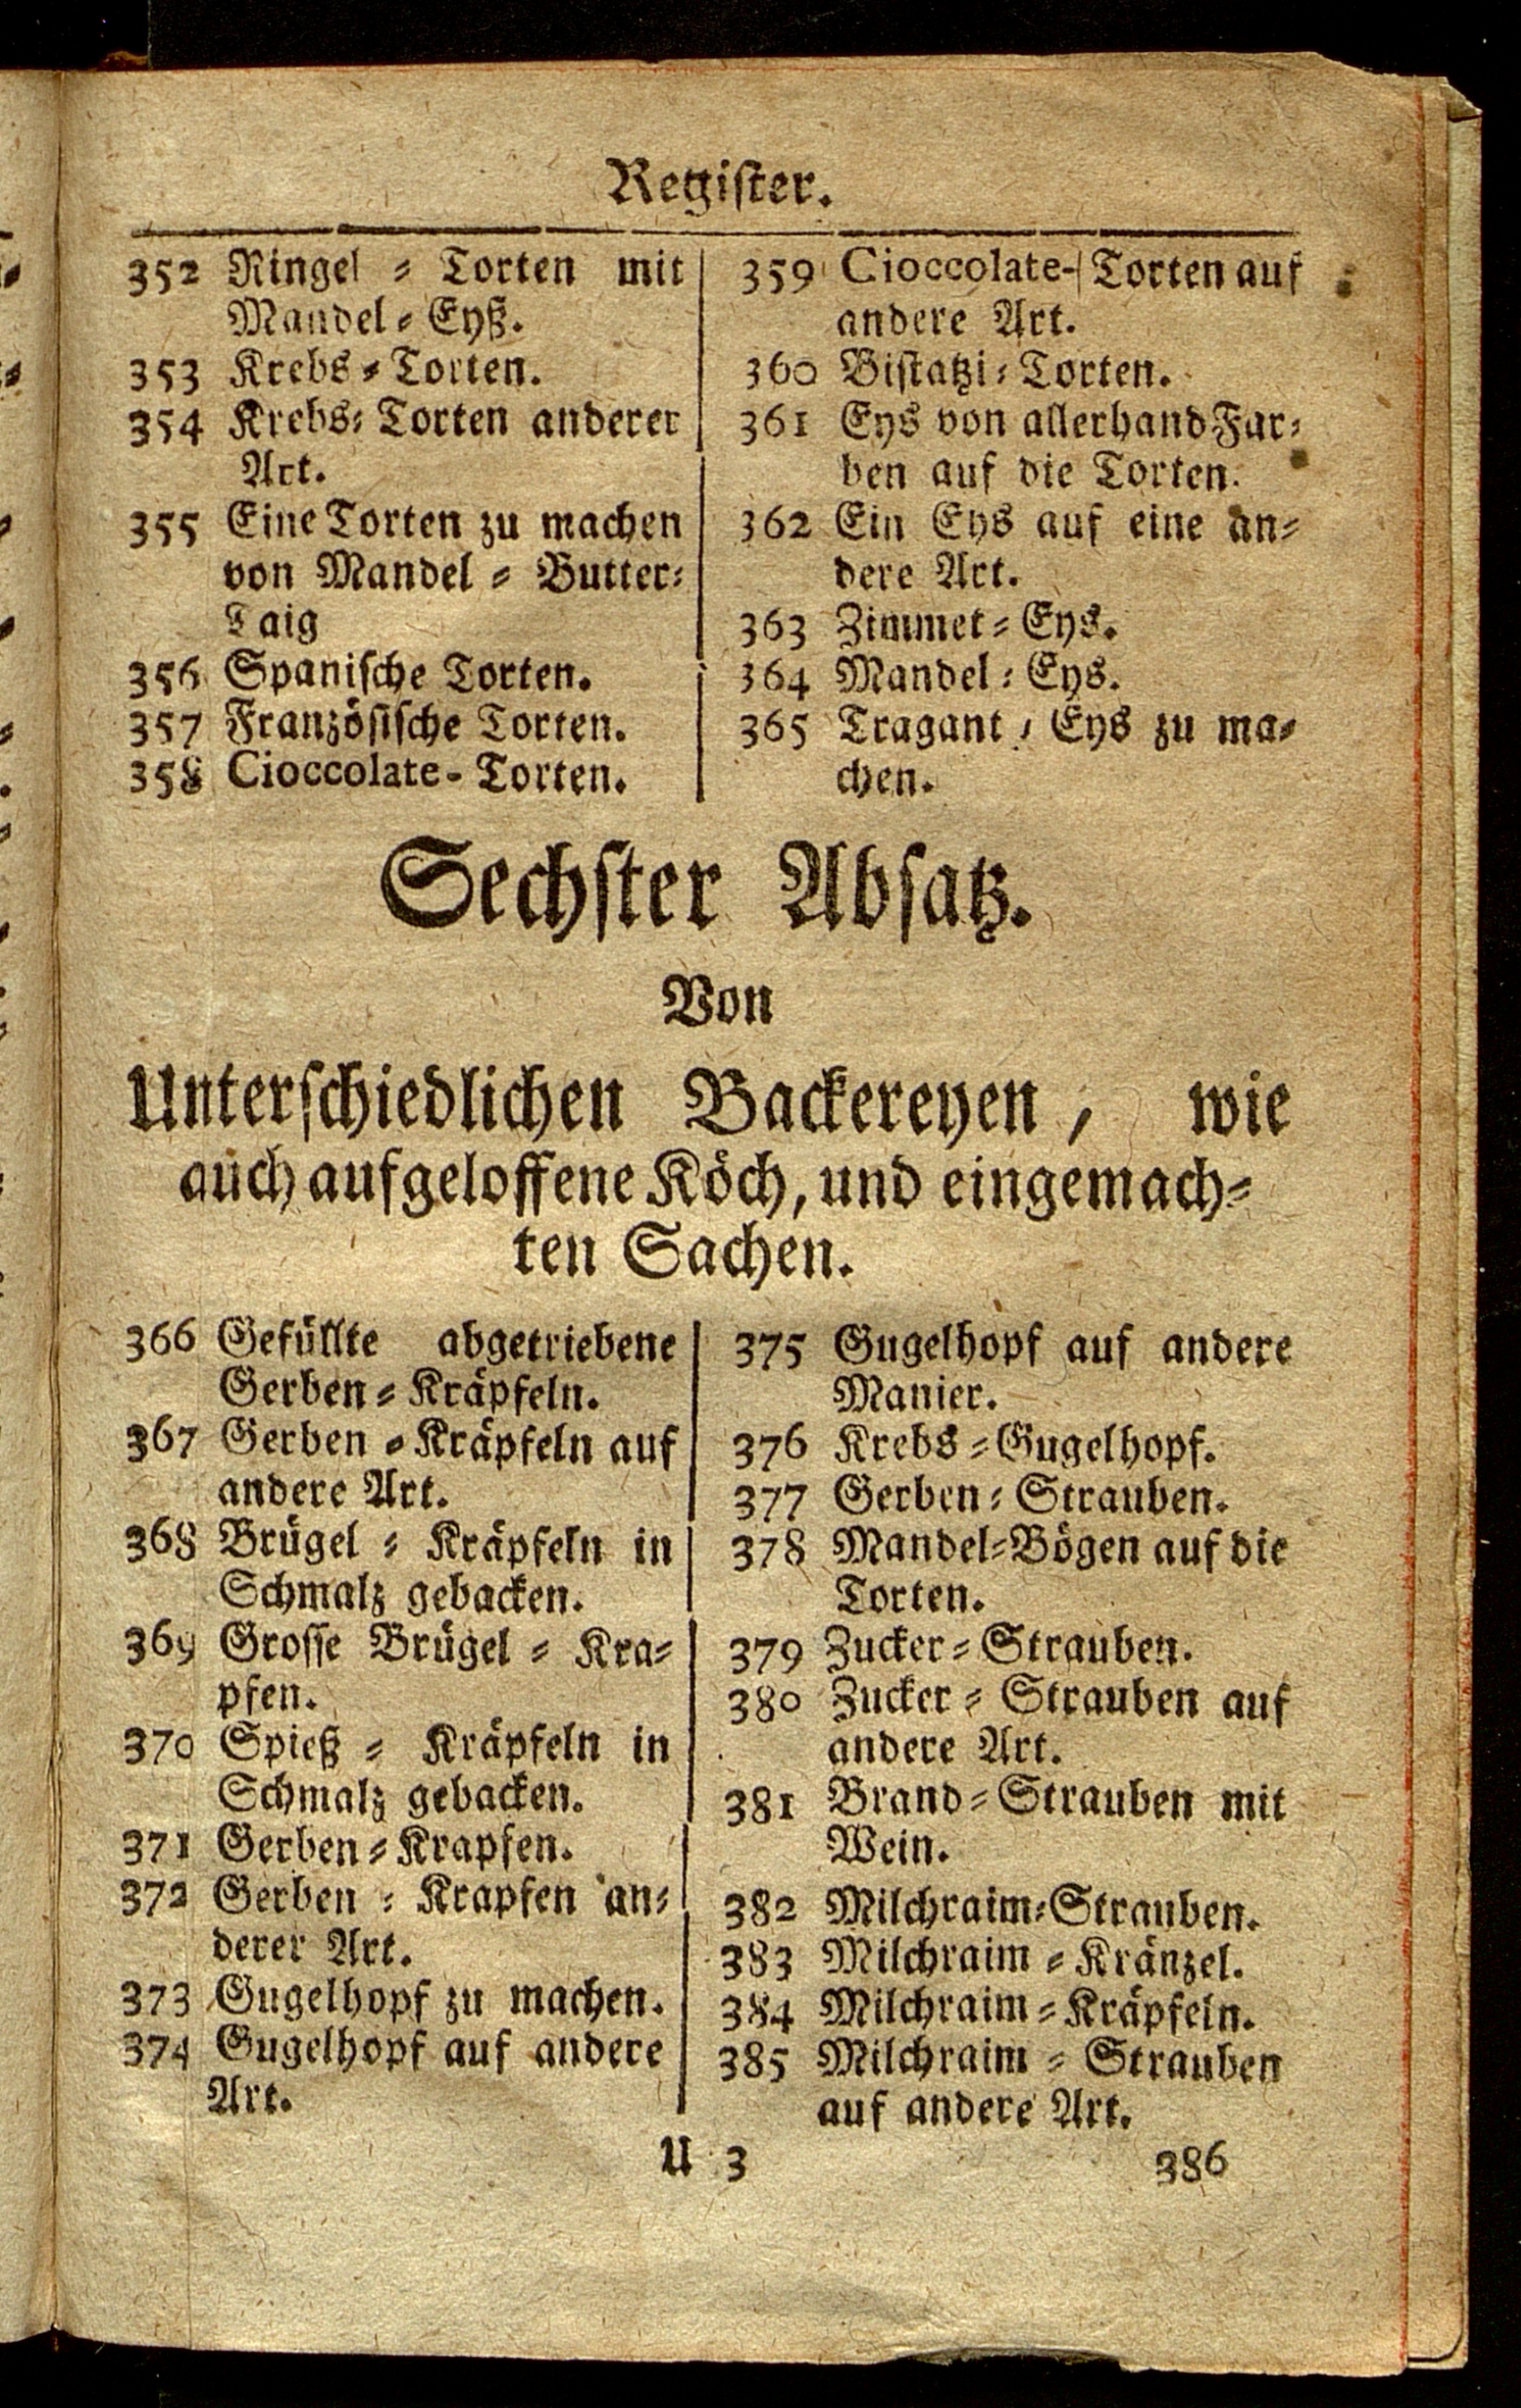 Register.
352 Ringel = Torten mit
Mandel = Eyß.
353 Krebs = Torten.
354 Krebs = Torten anderer
Art.
355 Eine Torten zu machen
von Mandel = Butter=
Taig
356 Spanische Torten.
357 Französische Torten.
358 Cioccolate - Torten.
359 Cioccolate- Torten auf
andere Art.
360 Bistatzi = Torten.
361 Eys von allerhand Far=
ben auf die Torten.
362 Ein Eys auf eine an=
dere Art.
363 Zimmet = Eys.
364 Mandel = Eys.
365 Tragant / Eys zu ma=
chen.
Sechster Absatz.
Von
Unterschiedlichen Backereyen / wie
auch aufgeloffene Köch, und eingemach=
ten Sachen.
366 Gefüllte abgetriebene
Gerben = Kräpfeln.
367 Gerben = Kräpfeln auf
andere Art.
368 Brügel = Kräpfeln in
Schmalz gebacken.
369 Grosse Brügel = Kra=
pfen.
370 Spieß = Kräpfeln in
Schmalz gebacken.
371 Gerben = Krapfen.
372 Gerben = Krapfen an=
derer Art.
373 Gugelhopf zu machen.
374 Gugelhopf auf andere
Art.
375 Gugelhopf auf andere
Manier.
376 Krebs = Gugelhopf.
377 Gerben = Strauben.
378 Mandel=Bögen auf die
Torten.
379 Zucker = Strauben.
380 Zucker = Strauben auf
andere Art.
381 Brand = Strauben mit
Wein.
382 Milchraim=Strauben.
383 Milchraim = Kränzel.
384 Milchraim = Kräpfeln.
385 Milchraim = Strauben
auf andere Art.
U 3 386